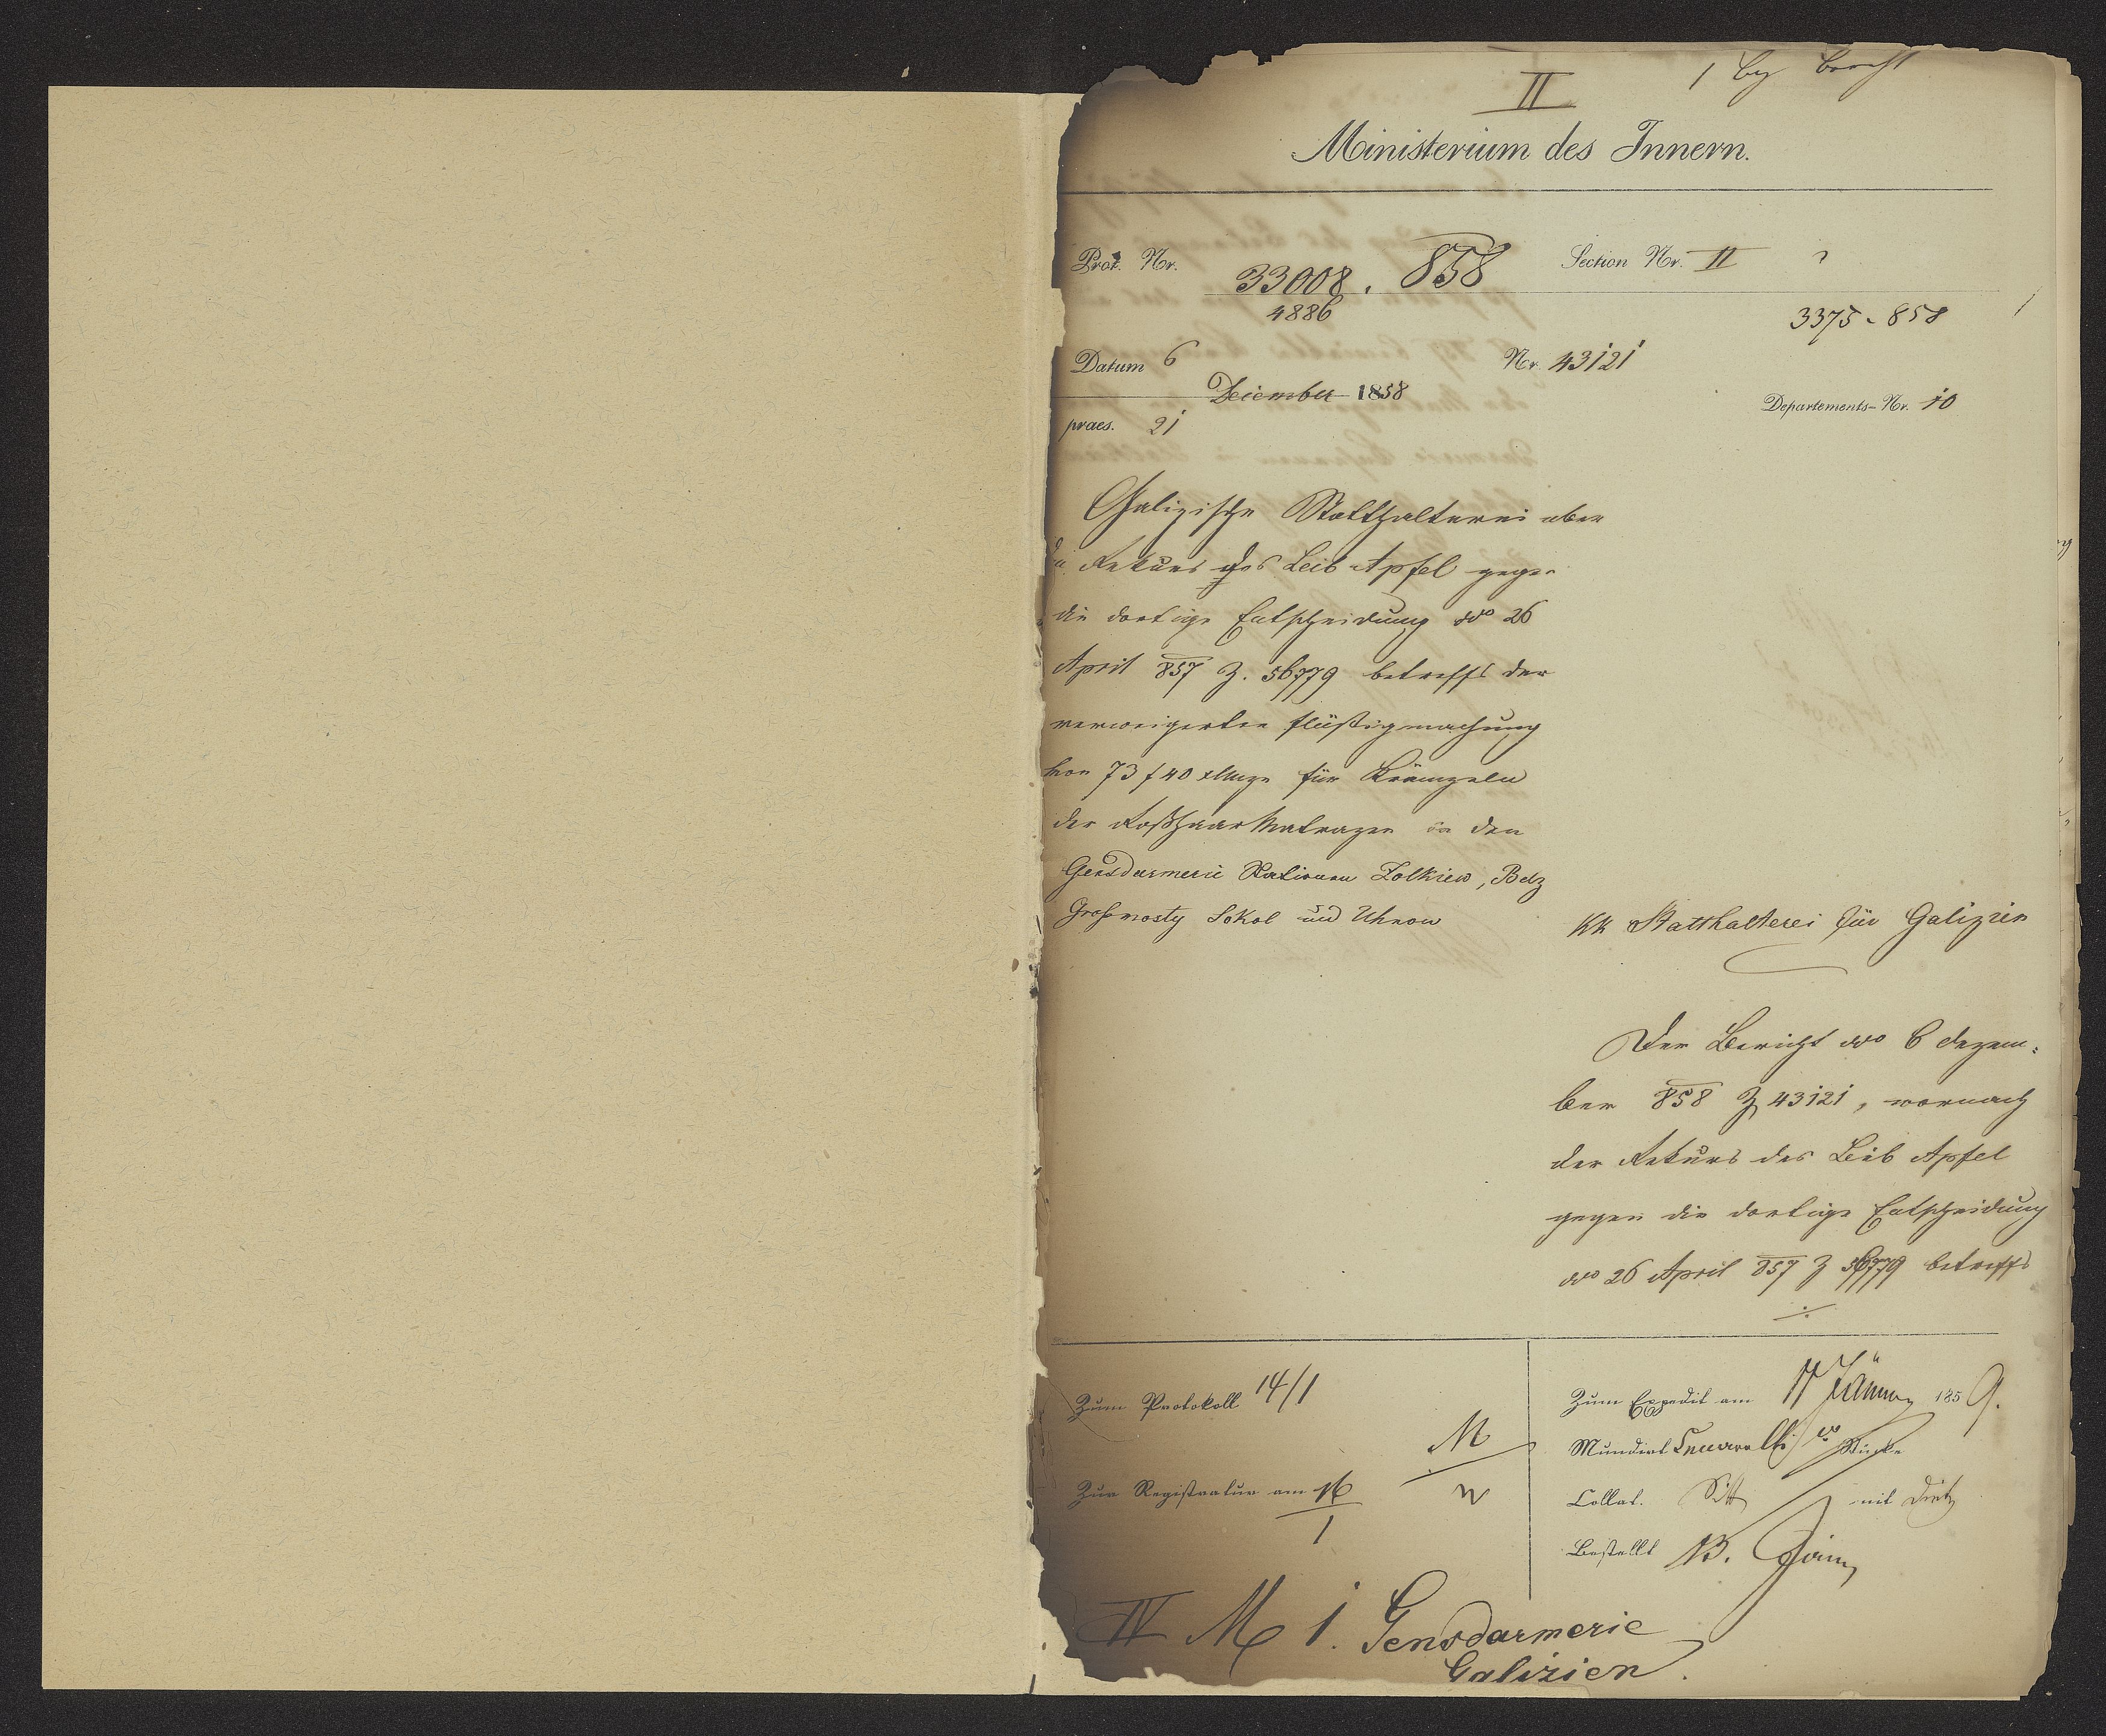 II
Ministerium des Innern.
Prot. Nr. 33008. 858
4886
Section Nr. II
3375-858
Datum 6
December 1858
Nr. 43121
praes. 21
Departements-Nr. 10
Galizische Statthalterei über
Rekurs des Leib Apfel gegen
die dortige Entscheidung ddo 26
April 857 Z. 56779 betreffs der
verweigerten Flüßigmachung
von 73 f 40 xMze für Krämpeln
der Roßhaar Matrazen in den
Gensdarmerie Stationen Zolkiew, Belz
Großmosty Sokal und Uhnow
KK Statthalterei für Galizien
Der Bericht ddo 6 Dezem-
ber 858 Z 43121, wornach
der Rekurs des Leib Apfel
gegen die dortige Entscheidung
ddo 26 April 857 Z 56779 betreffs
./.
Zum Protokoll 14/1
Zur Registratur am 16
1
M
Zum Expedit am 11 Jänner 1859.
Mundirt
Collat. mit Dietz
Bestellt 13. Jän
IV M 1. Gensdarmerie
Galizien.